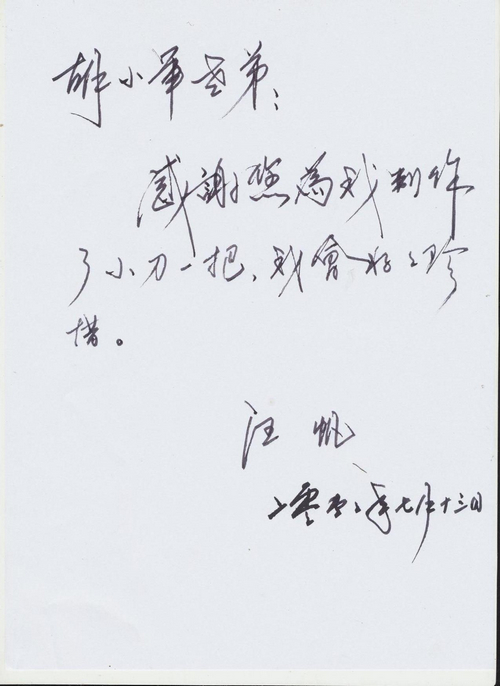 胡小军老弟：
感謝您為我制作
了小刀一把，我會好好珍
惜。
汪帆
二零零二年七月十三日